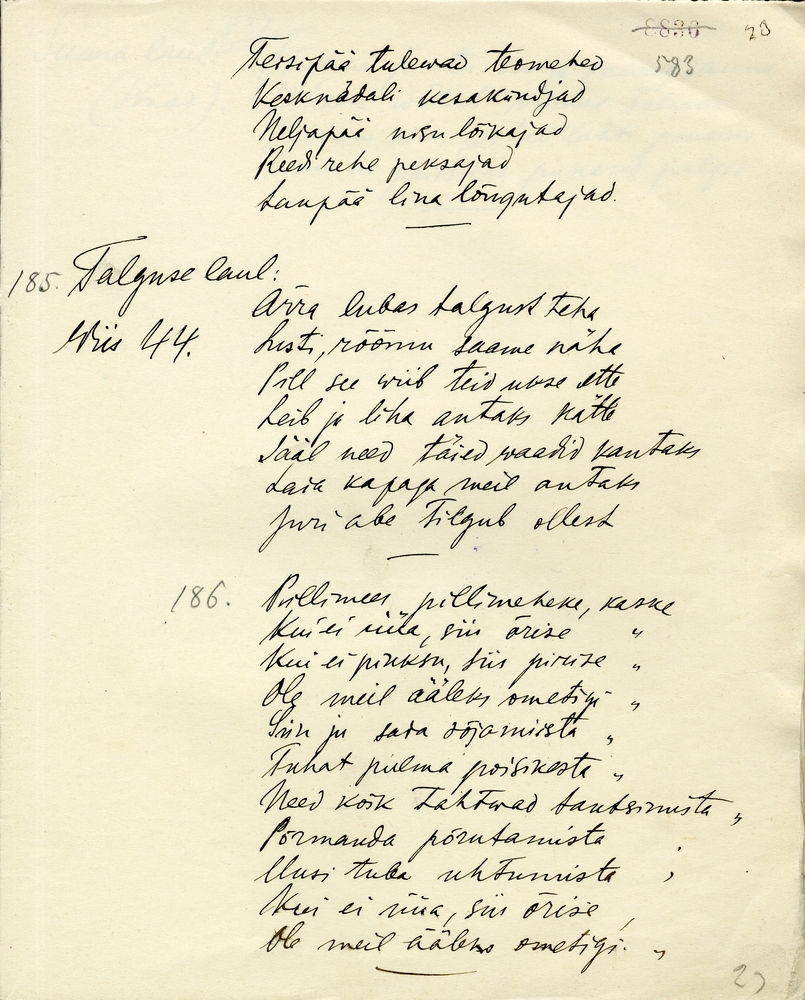 8836 20
583
Teisipää tulewad teomehed
Kesknädali kesakündjad
Neljapää nisu lõikajad
Reedi rehe peksajad
Laupää lina lõngutajad.
185. Talguse laul:
Wiis 44.
Ärra lubas talgust teha
Lusti, rõõmu saame näha
Pill see wiib teid ukse ette
Leib ja liha antaks kätte
Sääl need täied waadid kantaks
Laia kapaga meil antaks
Juri abe tilgub ollest
186. Pillimees, pillimeheke, kaske
Kui ei üüa, siis õrise "
Kui ei piuksu, siis pirise "
Ole meil ääleks ometigi "
Siin ju sada sõjamiista "
Tuhat pulma poisikesta "
Need kõik tahtwad tantsimista "
Põrmanda põrutamista "
Uusi tuba uhtumista "
Kui ei üüa, siis õrise "
Ole meil ääleks ometigi. "